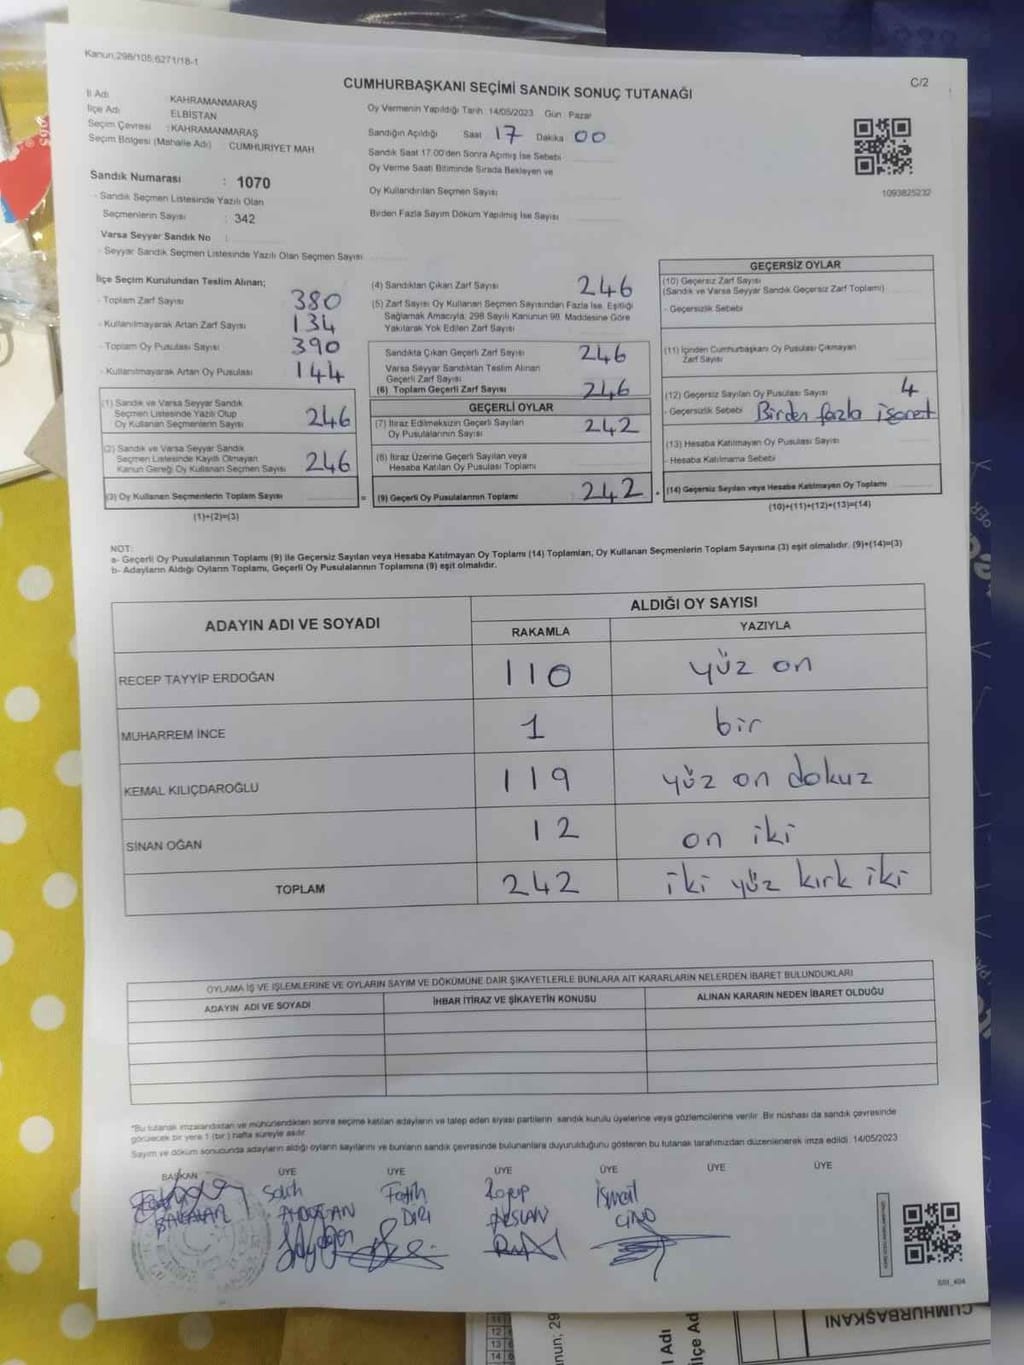 Kanun;298/105,6271/18-1
C/2
CUMHURBAŞKANI SEÇİMİ SANDIK SONUÇ TUTANAĞI
İl Adı KAHRAMANMARAŞ
İlçe Adı ELBİSTAN
Seçim Çevresi : KAHRAMANMARAŞ
Seçim Bölgesi (Mahalle Adı) CUMHURİYET MAH.
Sandık Numarası : 1070
- Sandık Seçmen Listesinde Yazılı Olan
Seçmenlerin Sayısı : 342
Varsa Seyyar Sandık No :
- Seyyar Sandık Seçmen Listesinde Yazılı Olan Seçmen Sayısı
Oy Vermenin Yapıldığı Tarih: 14/05/2023 Gün: Pazar
Sandığın Açıldığı Saat 17 Dakika 00
Sandık Saat 17.00'den Sonra Açılmış İse Sebebi
Oy Verme Saati Bitiminde Sırada Bekleyen ve
Oy Kullandırılan Seçmen Sayısı
Birden Fazla Sayım Döküm Yapılmış İse Sayısı
1093825232
İlçe Seçim Kurulundan Teslim Alınan;
- Toplam Zarf Sayısı 380
- Kullanılmayarak Artan Zarf Sayısı 134
- Toplam Oy Pusulası Sayısı 390
- Kullanılmayarak Artan Oy Pusulası 144
(1) Sandık ve Varsa Seyyar Sandık
Seçmen Listesinde Yazılı Olup
Oy Kullanan Seçmenlerin Sayısı 246
(2) Sandık ve Varsa Seyyar Sandık
Seçmen Listesinde Kayıtlı Olmayan
Kanun Gereği Oy Kullanan Seçmen Sayısı 246
(3) Oy Kullanan Seçmenlerin Toplam Sayısı =
(1)+(2)=(3)
(4) Sandıktan Çıkan Zarf Sayısı 246
(5) Zarf Sayısı Oy Kullanan Seçmen Sayısından Fazla İse, Eşitliği
Sağlamak Amacıyla; 298 Sayılı Kanunun 98. Maddesine Göre
Yakılarak Yok Edilen Zarf Sayısı
Sandıkta Çıkan Geçerli Zarf Sayısı 246
Varsa Seyyar Sandıktan Teslim Alınan
Geçerli Zarf Sayısı
(6) Toplam Geçerli Zarf Sayısı 246
GEÇERLİ OYLAR
(7) İtiraz Edilmeksizin Geçerli Sayılan
Oy Pusulalarının Sayısı 242
(8) İtiraz Üzerine Geçerli Sayılan veya
Hesaba Katılan Oy Pusulası Toplamı
(9) Geçerli Oy Pusulalarının Toplamı 242
GEÇERSİZ OYLAR
(10) Geçersiz Zarf Sayısı
(Sandık ve Varsa Seyyar Sandık Geçersiz Zarf Toplamı)
- Geçersizlik Sebebi
(11) İçinden Cumhurbaşkanı Oy Pusulası Çıkmayan
Zarf Sayısı
(12) Geçersiz Sayılan Oy Pusulası Sayısı 4
- Geçersizlik Sebebi Birden fazla işaret
(13) Hesaba Katılmayan Oy Pusulası Sayısı
- Hesaba Katılmama Sebebi
(14) Geçersiz Sayılan veya Hesaba Katılmayan Oy Toplamı
(10)+(11)+(12)+(13)=(14)
NOT:
a- Geçerli Oy Pusulalarının Toplamı (9) ile Geçersiz Sayılan veya Hesaba Katılmayan Oy Toplamı (14) Toplamları, Oy Kullanan Seçmenlerin Toplam Sayısına (3) eşit olmalıdır. (9)+(14)=(3)
b- Adayların Aldığı Oyların Toplamı, Geçerli Oy Pusulalarının Toplamına (9) eşit olmalıdır.
ADAYIN ADI VE SOYADI
ALDIĞI OY SAYISI
RAKAMLA YAZIYLA
RECEP TAYYİP ERDOĞAN 110 yüz on
MUHARREM İNCE 1 bir
KEMAL KILIÇDAROĞLU 119 yüz on dokuz
SİNAN OĞAN 12 on iki
TOPLAM 242 iki yüz kırk iki
OYLAMA İŞ VE İŞLEMLERİNE VE OYLARIN SAYIM VE DÖKÜMÜNE DAİR ŞİKAYETLERLE BUNLARA AİT KARARLARIN NELERDEN İBARET BULUNDUKLARI
ADAYIN ADI VE SOYADI İHBAR İTİRAZ VE ŞİKAYETİN KONUSU ALINAN KARARIN NEDEN İBARET OLDUĞU
*Bu tutanak imzalandıktan ve mühürlendikten sonra seçime katılan adayların ve talep eden siyasi partilerin sandık kurulu üyelerine veya gözlemcilerine verilir. Bir nüshası da sandık çevresinde
görülecek bir yere 1 (bir) hafta süreyle asılır.
Sayım ve döküm sonucunda adayların aldığı oyların sayılarını ve bunların sandık çevresinde bulunanlara duyurulduğunu gösteren bu tutanak tarafımızdan düzenlenerek imza edildi. 14/05/2023
BAŞKAN ÜYE ÜYE ÜYE ÜYE ÜYE ÜYE
Salih Fatih İsmail
AYDOĞAN DİRİ ARSLAN
CUMHURBAŞKANI
İlçe Ad
l Adı
nun; 29
12
13
14